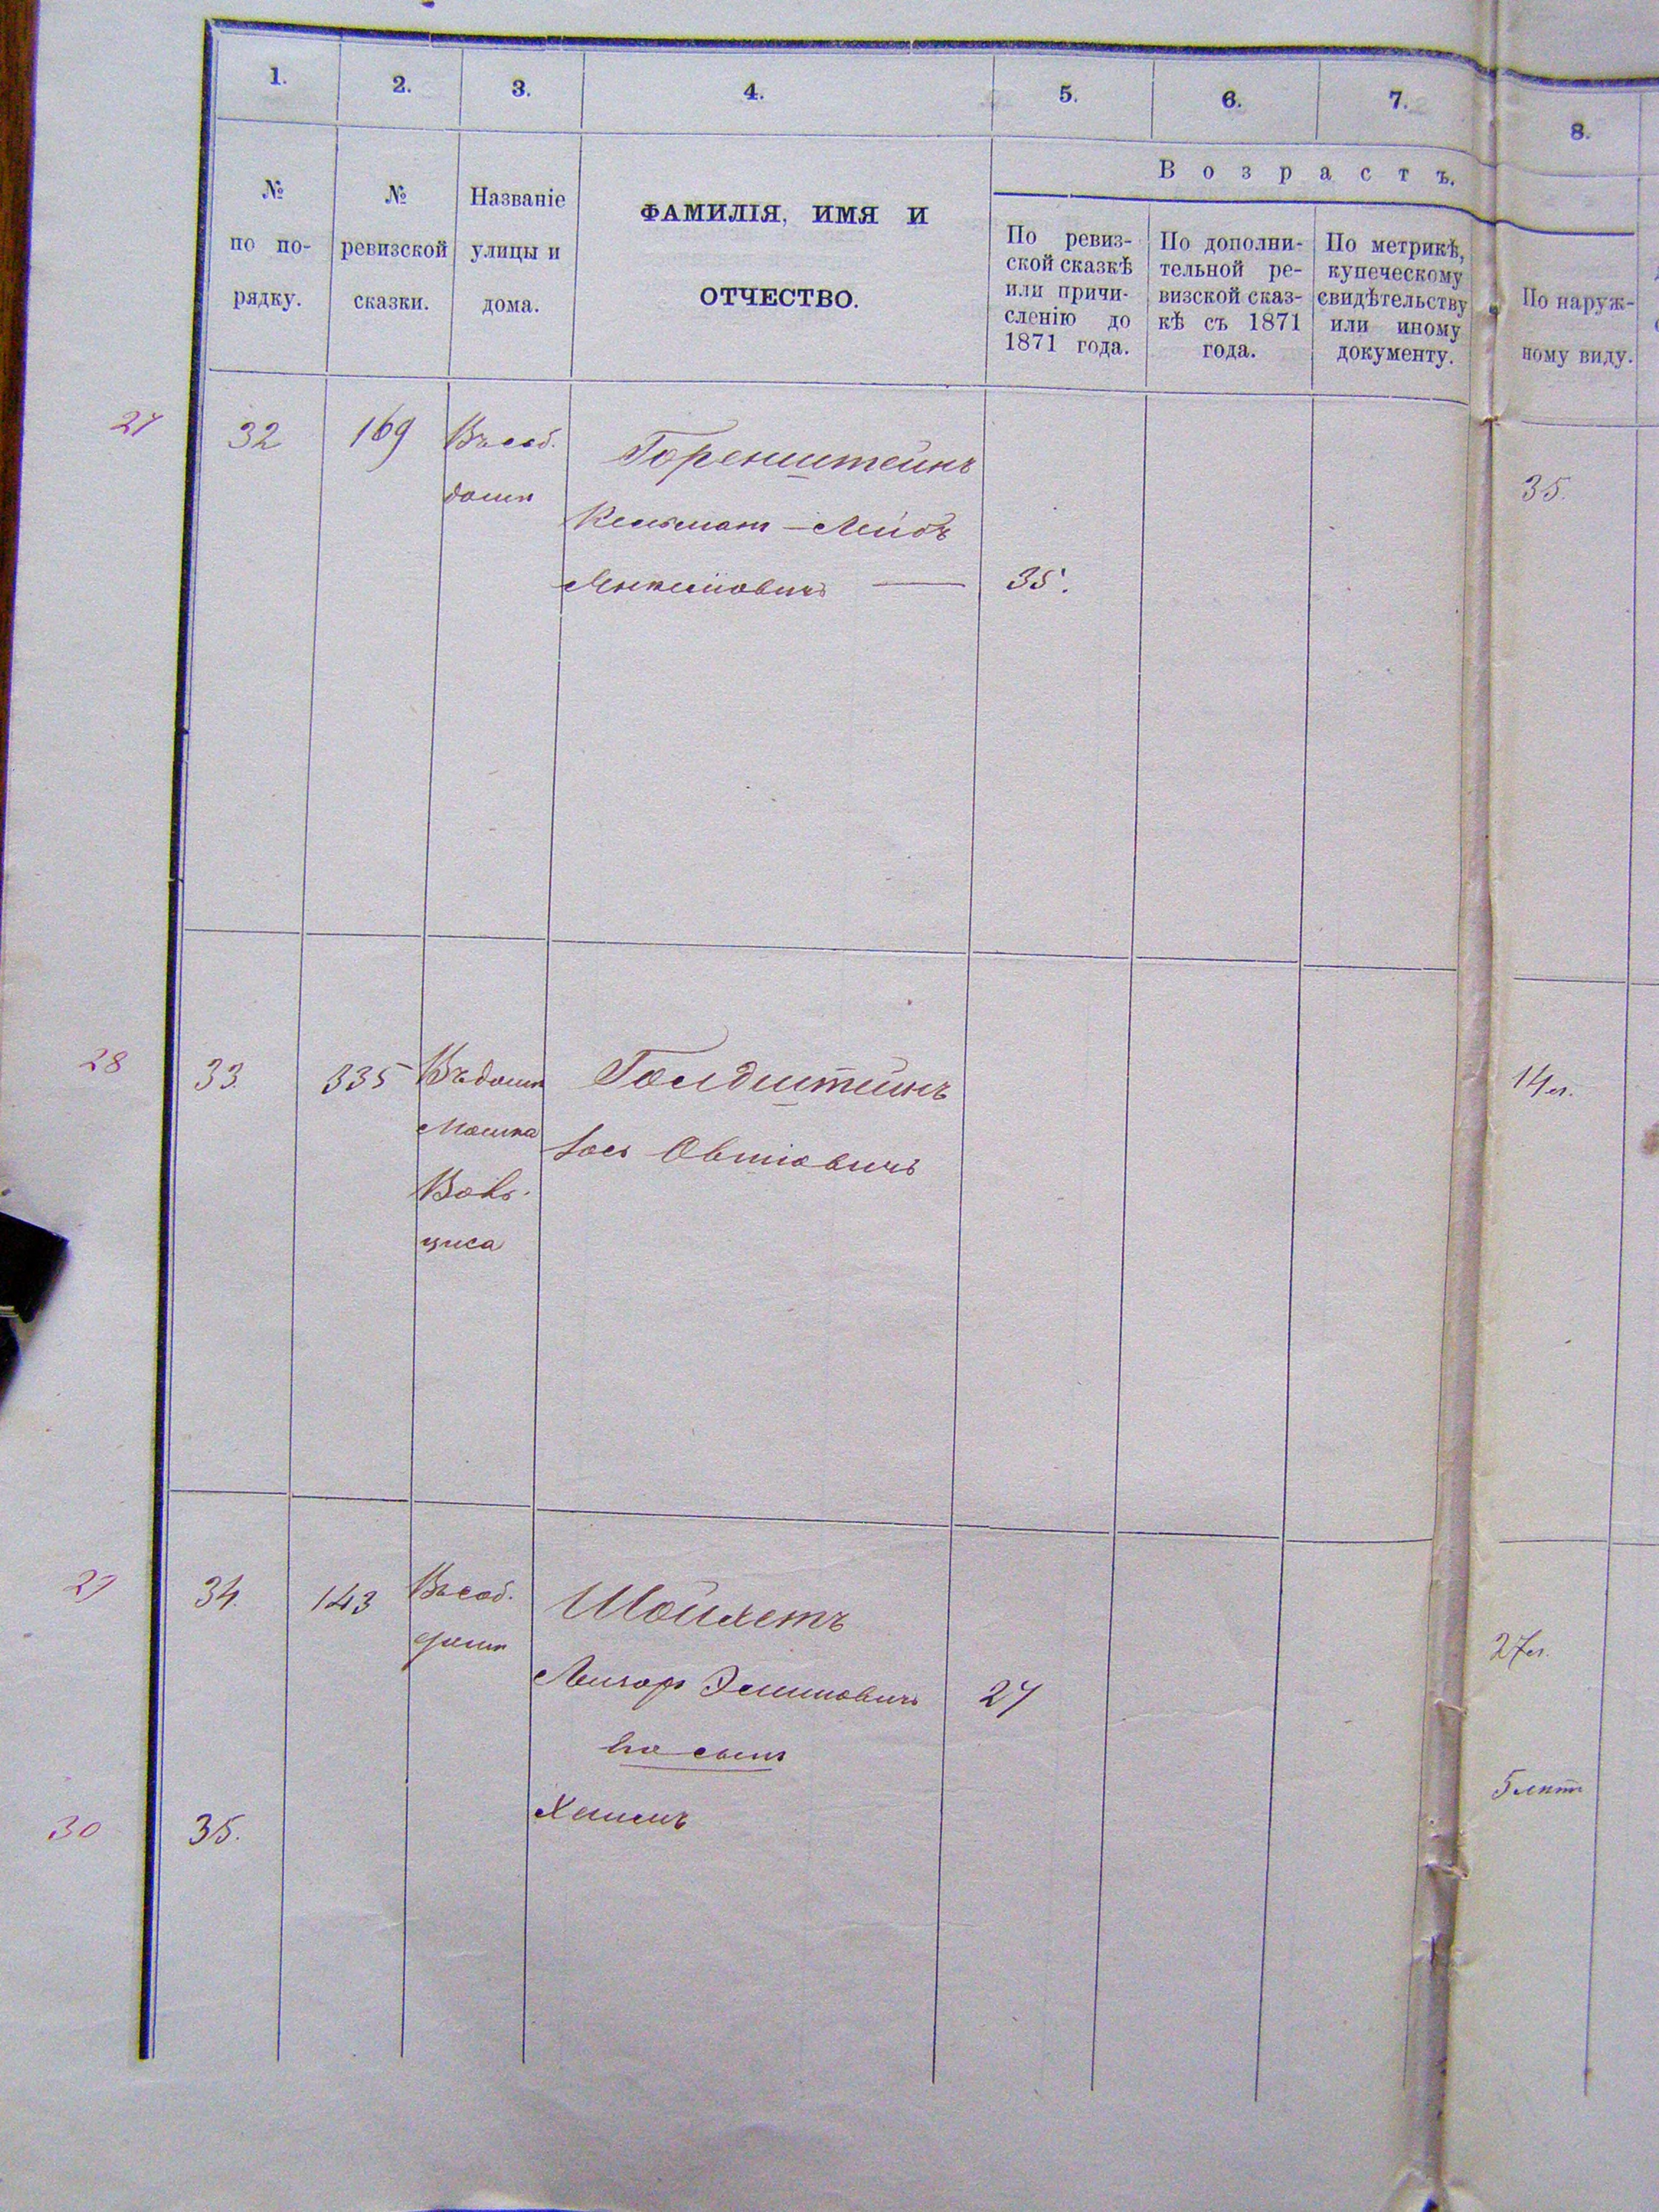 1.
2.
3.
4.
5.
6.
7.
8.
№
по по-
рядку.
№
ревизской
сказки.
Названіе
улицы и
дома.
ФАМИЛІЯ, ИМЯ И
ОТЧЕСТВО.
Возрастъ.
По ревиз-
ской сказкѣ
или причи-
сленію до
1871 года.
По дополни-
тельной ре-
визской сказ-
кѣ съ 1871
года.
По метрикѣ,
купеческому
свидѣтельству
или иному
документу.
По наруж-
ному виду.
27
32
169
Въ соб.
домѣ
Горенштейнъ
Кельман-Лейбъ
Янкелiовичъ —
35.
35.
28
33.
335
Въ домѣ
Мошка
Гольдштейнъ
Іось
14 л.
29
34.
143
Въ соб.
домѣ
Шойхетъ
Лейзоръ
27
27 л.
его сынъ
30
35.
Хаимъ
5 лѣтъ